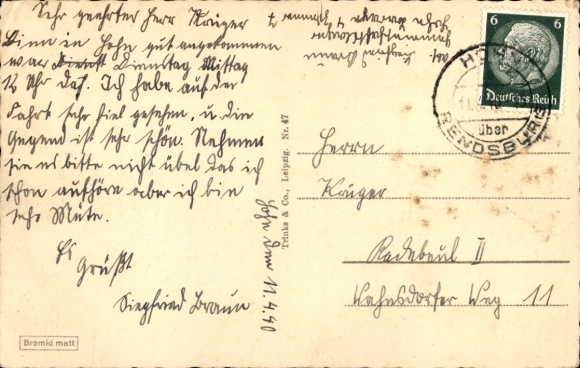 Sehr geehrter Herr Krüger
Binn in Hohn gut angekommen
war Dienstag Mittag
12 Uhr da. Ich habe auf der
Fahrt sehr fiel gesehen, u die
Gegend ist sehr schön. Nehmen
sie es bitte nicht übel das ich
schon aufhöre aber ich bin
sehr Müde.
Es
Grüßt
Siegfried Braun
11.4.40
Trinks & Co., Leipzig. Nr. 47
Bromid matt
6 6
Deutsches Reich
HOHN
über
RENDSBURG
Herrn
Krüger
Radebeul II
Wahnsdorfer Weg 11